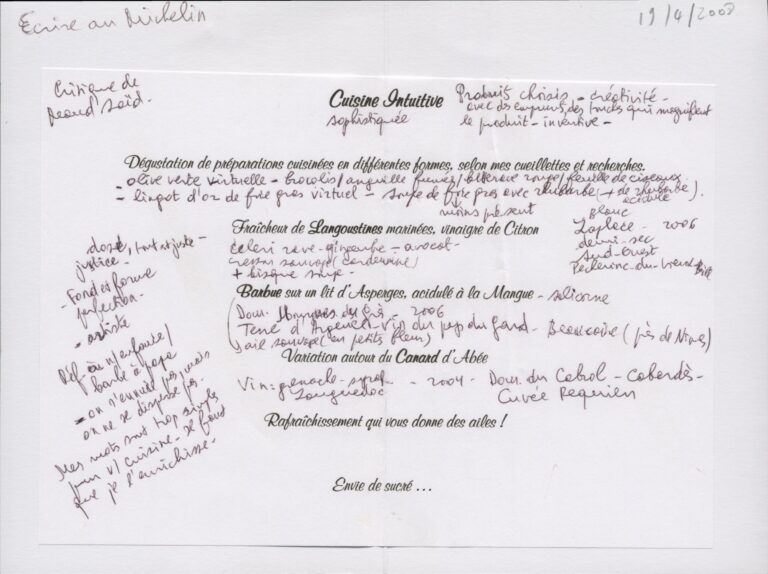 Ecrire au Michelin
19/4/2008
Critique de
Cuisine Intuitive
sophistiquée
Produits choisis - créativité -
avec des emprunts, des trucs qui magnifient
le produit - inventive -
Dégustation de préparations cuisinées en différentes formes, selon mes cueillettes et recherches.
- olive verte virtuelle - brocolis / anguille fumée / betterave rouge / feuille de
- lingot d'or de foie gras virtuel - soupe de foie gras avec rhubarbe (+ de rhubarbe
acidulé
moins présent
Fraîcheur de Langoustines marinées, vinaigre de Citron
blanc
Laplace - 2006
demi-sec
Sud-Ouest
Pacherenc-du-
céleri rave - gingembre - avocat -
cresson sauvage (cardamine)
+ bisque soupe -
dosé, tout est juste -
justice -
- Fond et forme
perfection -
- artiste
Barbue sur un lit d'Asperges, acidulé à la Mangue - salicorne
Dom. - 2006
Terre d'Argence - Vin du pays du Gard - Beaucaire (près de Nîmes)
ail sauvage (en petits fleurs)
Réf. à v/ enfance /
barbe à papa
- on s'ennuie pas mais
on ne se disperse pas -
Mes mots sont trop simples
pour v/ cuisine - se faut
que je l'enrichisse -
Variation autour du Canard d'Abée
Vin: grenache - syrah - 2004 - Dom. du Cabrol - Cabardès -
Languedoc
Cuvée Requieu
Rafraîchissement qui vous donne des ailes !
Envie de sucré ...